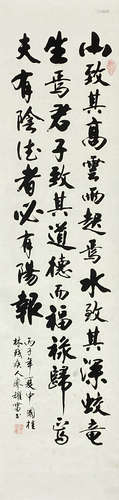 山致其高雲雨起焉水致其深蛟竜
生焉君子致其道德而福祿歸焉
夫有陰德者必有陽報
丙子年夏中國桂
林残疾人廖耀書